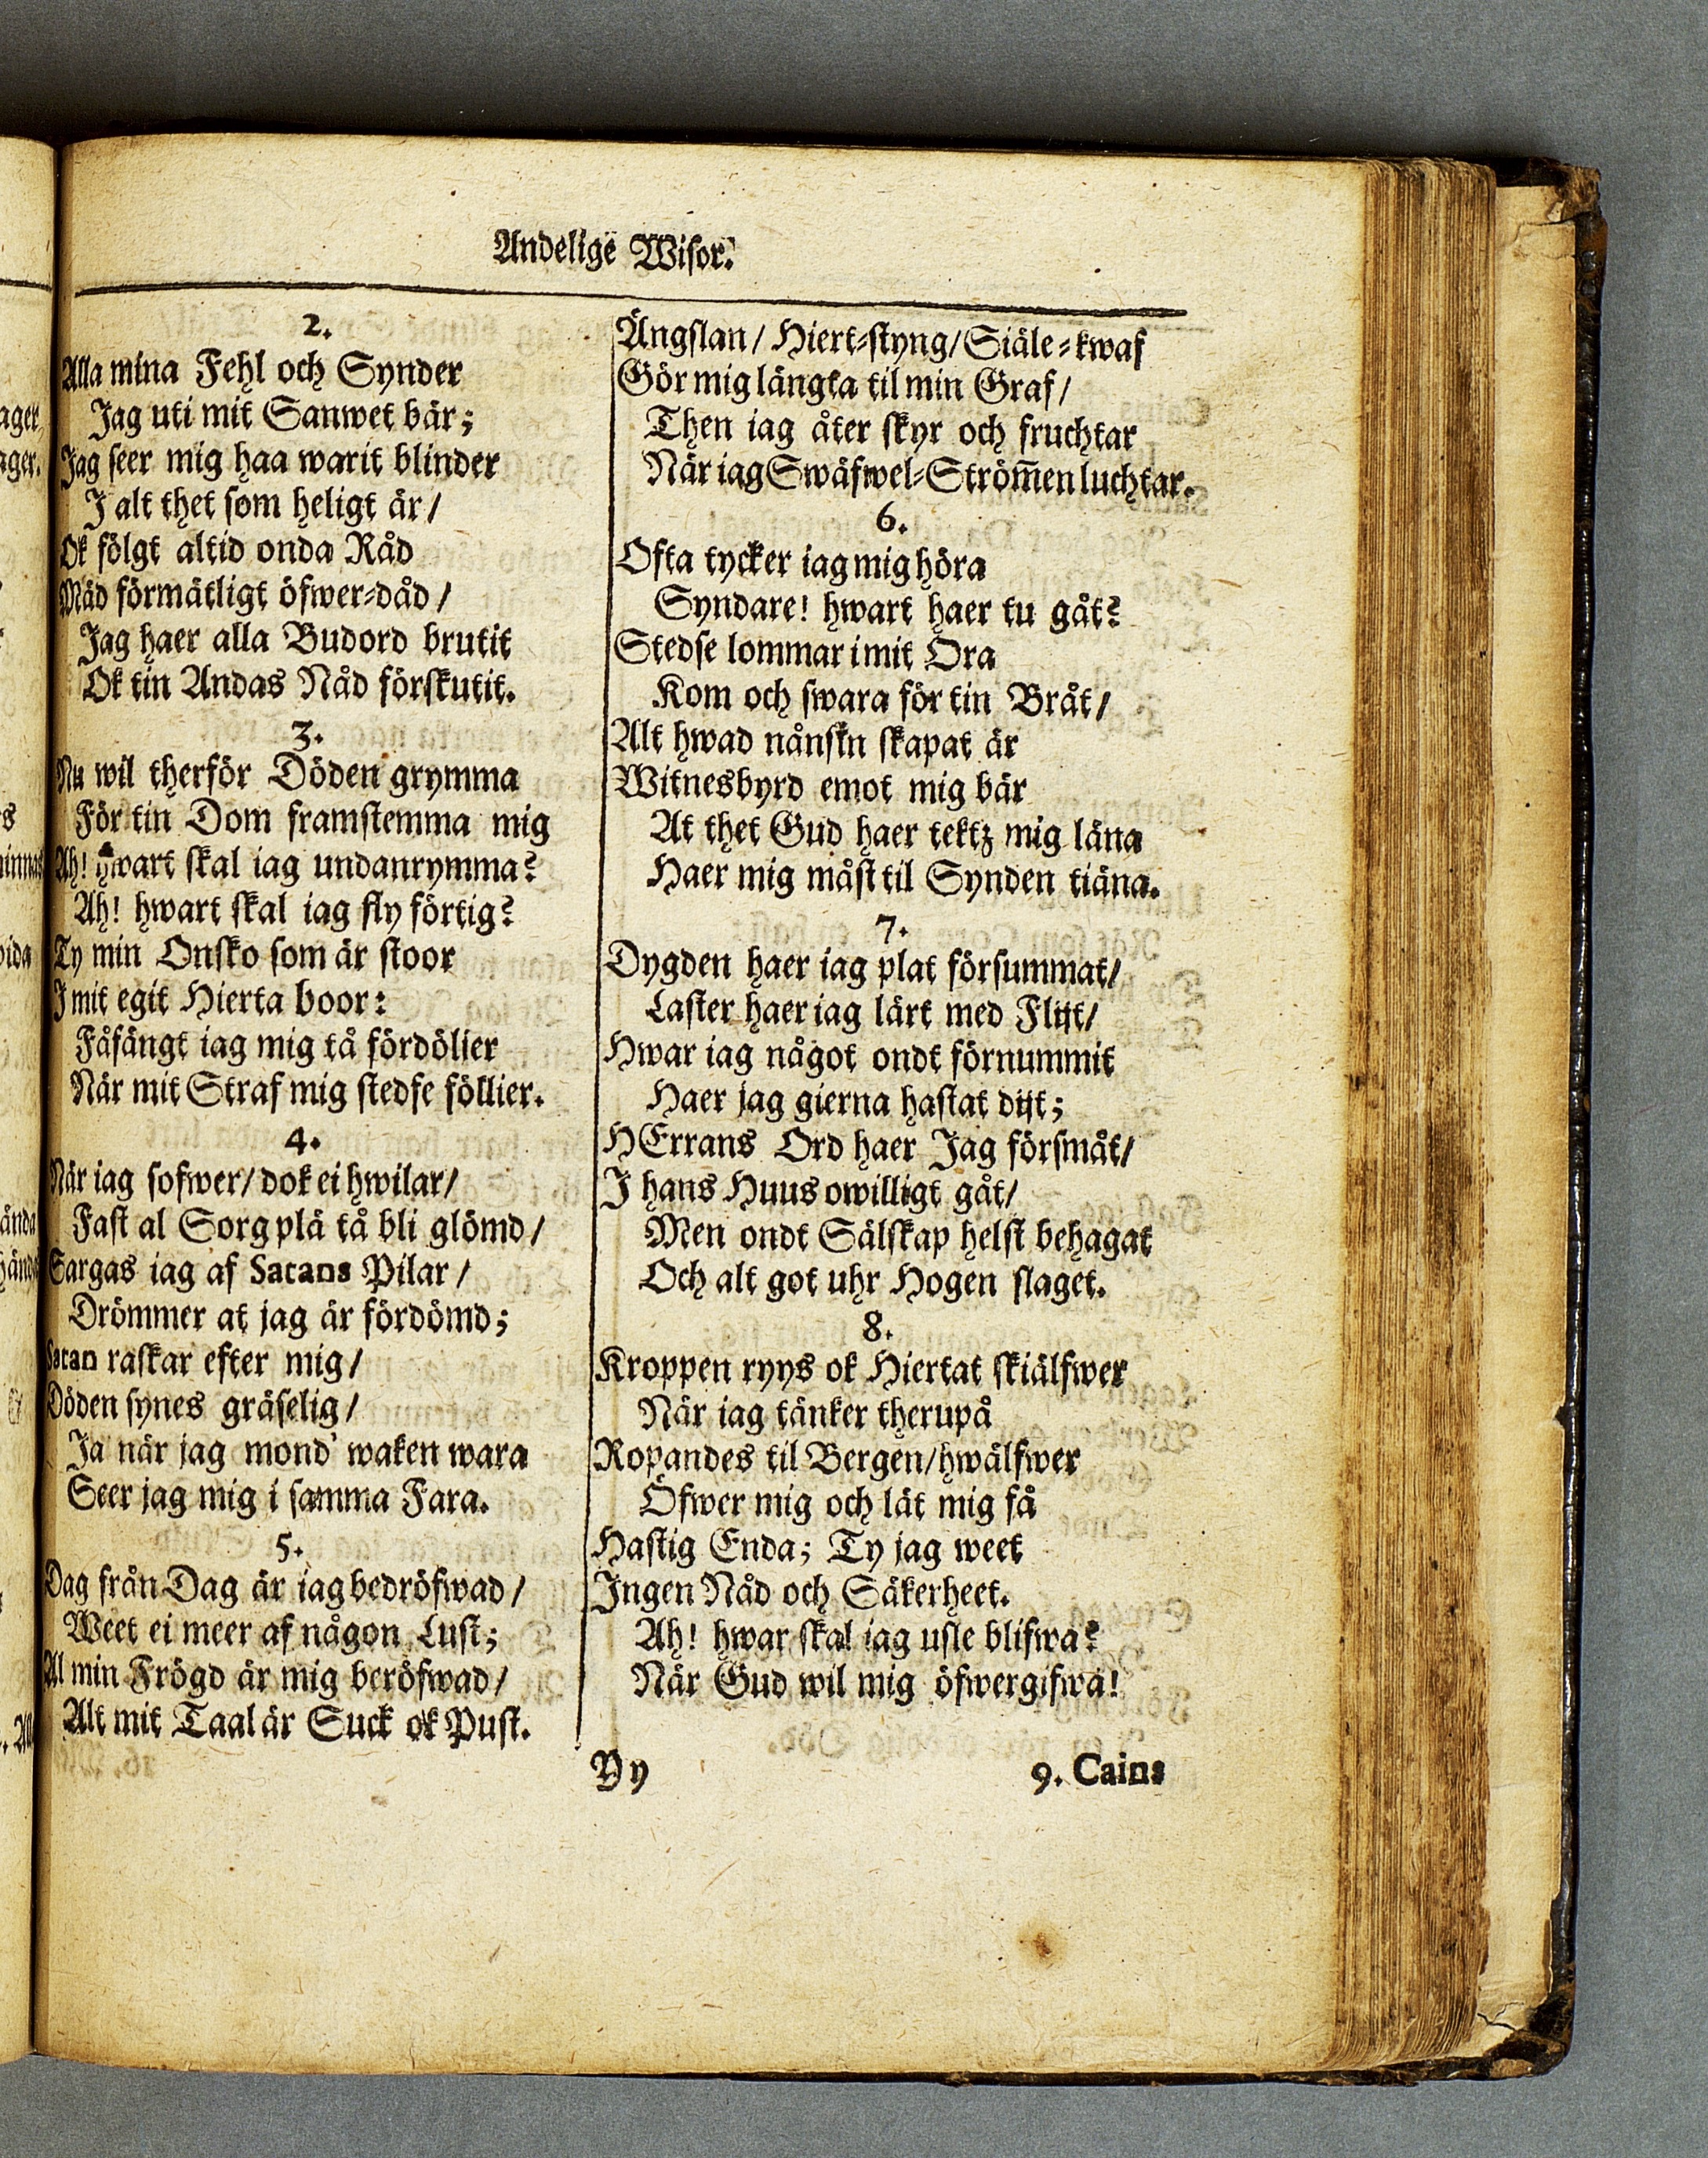 Andelige Wisor.
2.
Alla mina Fehl och Synder
Jag uti mit Sanwet bär;
Jag seer mig haa warit blinder
J alt thet som heligt är/
Ok fölgt altid onda Råd
Mäd förmätligt öfwer-dåd/
Jag haer alla Budord brutit
Ok tin Andas Nåd förskutit.
3.
Nu wil therför Döden grymma
För tin Dom framstemma mig
Ah! hwart skal iag undanrymma?
Ah! hwart skal iag fly förtig?
Ty min Onsko som är stoor
J mit egit Hierta boor:
Fåfängt iag mig tå fördölier
När mit Straf mig stedse föllier.
4.
När iag sofwer/ dok ei hwilar/
Fast al Sorg plä tå bli glömd/
Sargas iag af Satans Pilar/
Drömmer at jag är fördömd;
Satan raskar efter mig/
Döden synes gräselig/
Ja när jag mond' waken wara
Seer jag mig i samma Fara.
5.
Dag från Dag är iag bedröfwad/
Weet ei meer af någon Lust;
Al min Frögd är mig beröfwad/
Alt mit Taal är Suck ok Pust.
Ängslan/ Hiert-styng/ Siäle-kwaf
Gör mig längta til min Graf/
Then iag åter skyr och fruchtar
När iag Swäfwel-Strömen luchtar.
6.
Ofta tycker iag mig höra
Syndare! hwart haer tu gåt?
Stedse lommar i mit Ora
Kom och swara för tin Bråt/
Alt hwad nånsin skapat är
Witnesbyrd emot mig bär
At thet Gud haer tektz mig läna
Haer mig måst til Synden tiäna.
7.
Dygden haer iag plat försummat/
Laster haer iag lärt med Flijt/
Hwar iag något ondt förnummit
Haer jag gierna hastat dijt;
HErrans Ord haer Jag försmåt/
J hans Huus owilligt gåt/
Men ondt Sälskap helst behagat
Och alt got uhr Hogen slaget.
8.
Kroppen ryys ok Hiertat skiälfwer
När iag tänker therupå
Ropandes til Bergen/ hwälfwer
Öfwer mig och lät mig få
Hastig Enda; Ty jag weet
Jngen Nåd och Säkerheet.
Ah! hwar skal iag usle blifwa?
När Gud wil mig öfwergifwa!
Yy
9. Cains